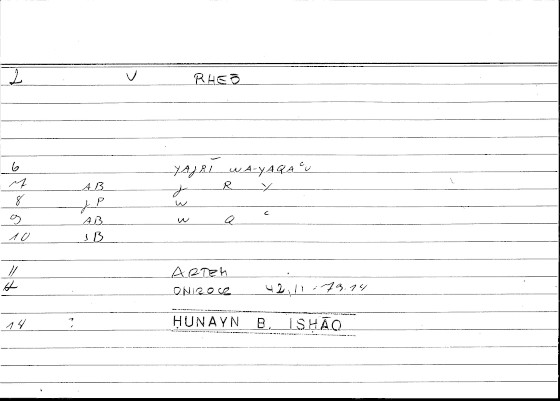 2 V RHEƏ
6 YAJRĪ WA-YAQAʿU
7 AB J R Y
8 JP W
9 AB W Q ʿ
10 JB
11 ARTEM
ONIROCR 42,11 - 79.14
14 ? HUNAYN B. ISHĀQ